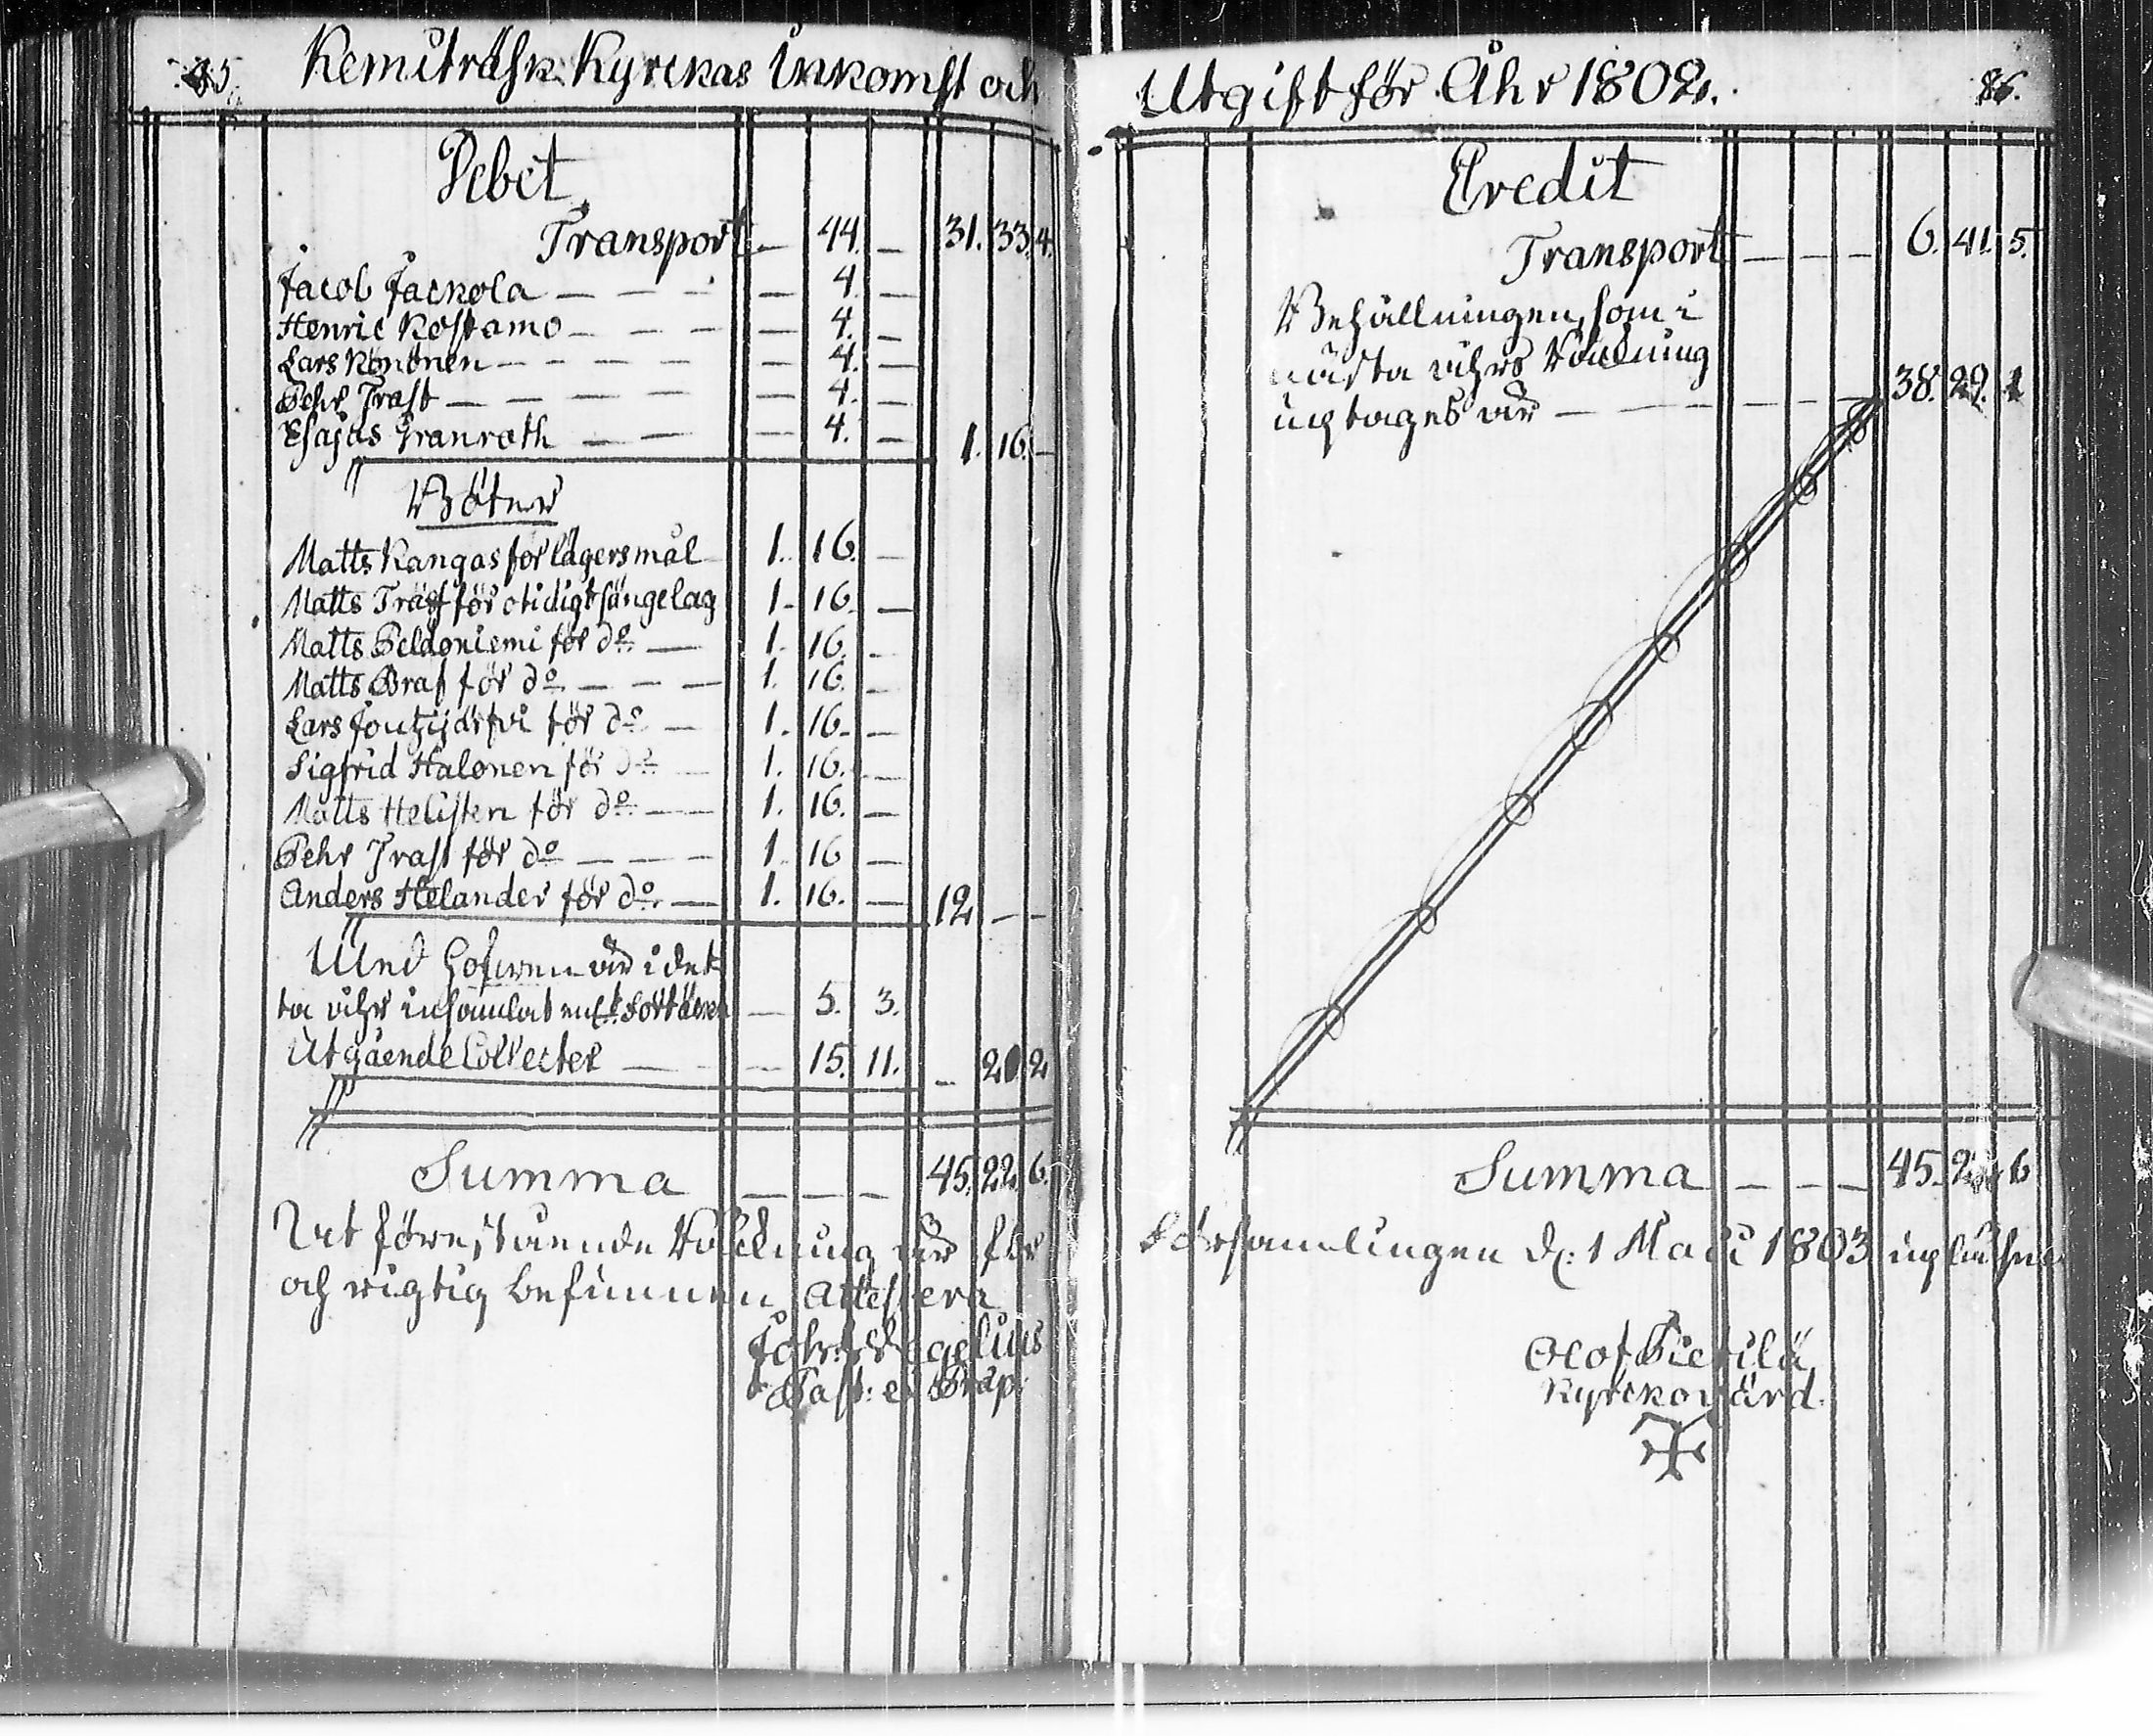 85. Kemiträsk Kyrckas Inkomst och
Debet
Transport — 44. — 31. 33. 4.
Jacob Jackola — — — — 4. —
Henric Kostamo — — — — 4. —
Lars Könönen — — — — — 4. —
Pehr Trast — — — — — 4. —
Esajas Granroth — — — 4. — 1. 16. —
Böter
Matts Kangas för lägersmål 1. 16. —
Matts Träsk för otidigt sängelag 1. 16. —
Matts Peldoniemi för do — 1. 16. —
Matts Braf för do — — — 1. 16. —
Lars Joutzijärfvi för do — 1. 16. —
Sigfrid Halonen för do — 1. 16. —
Matts Helisten för do — 1. 16. —
Pehr Trast för do — — — 1. 16 —
Anders Helander för do — 1. 16. — 12 — —
Med Hofwen är i det
ta åhr insamlat — 5. 3.
Utgående Collecter — — 15. 11. — 20. 2
Summa — — — 45. 22. 6.
At förestående Räckning är för
och rigtig befunnen, Attestera
Joh: Wegelius
Past: et Præp:
Utgift för Åhr 1802. 86.
Credit
Transport — — — 6. 41. 5.
Behållningen, som i
nästa åhrs Räckning
uptages är — — — — — 38. 29. 1
Summa — — — 45. 22. 6
Församlingen d: 1 Maji 1803 upläsen
Olof Pietilä
Kyrckovärd.